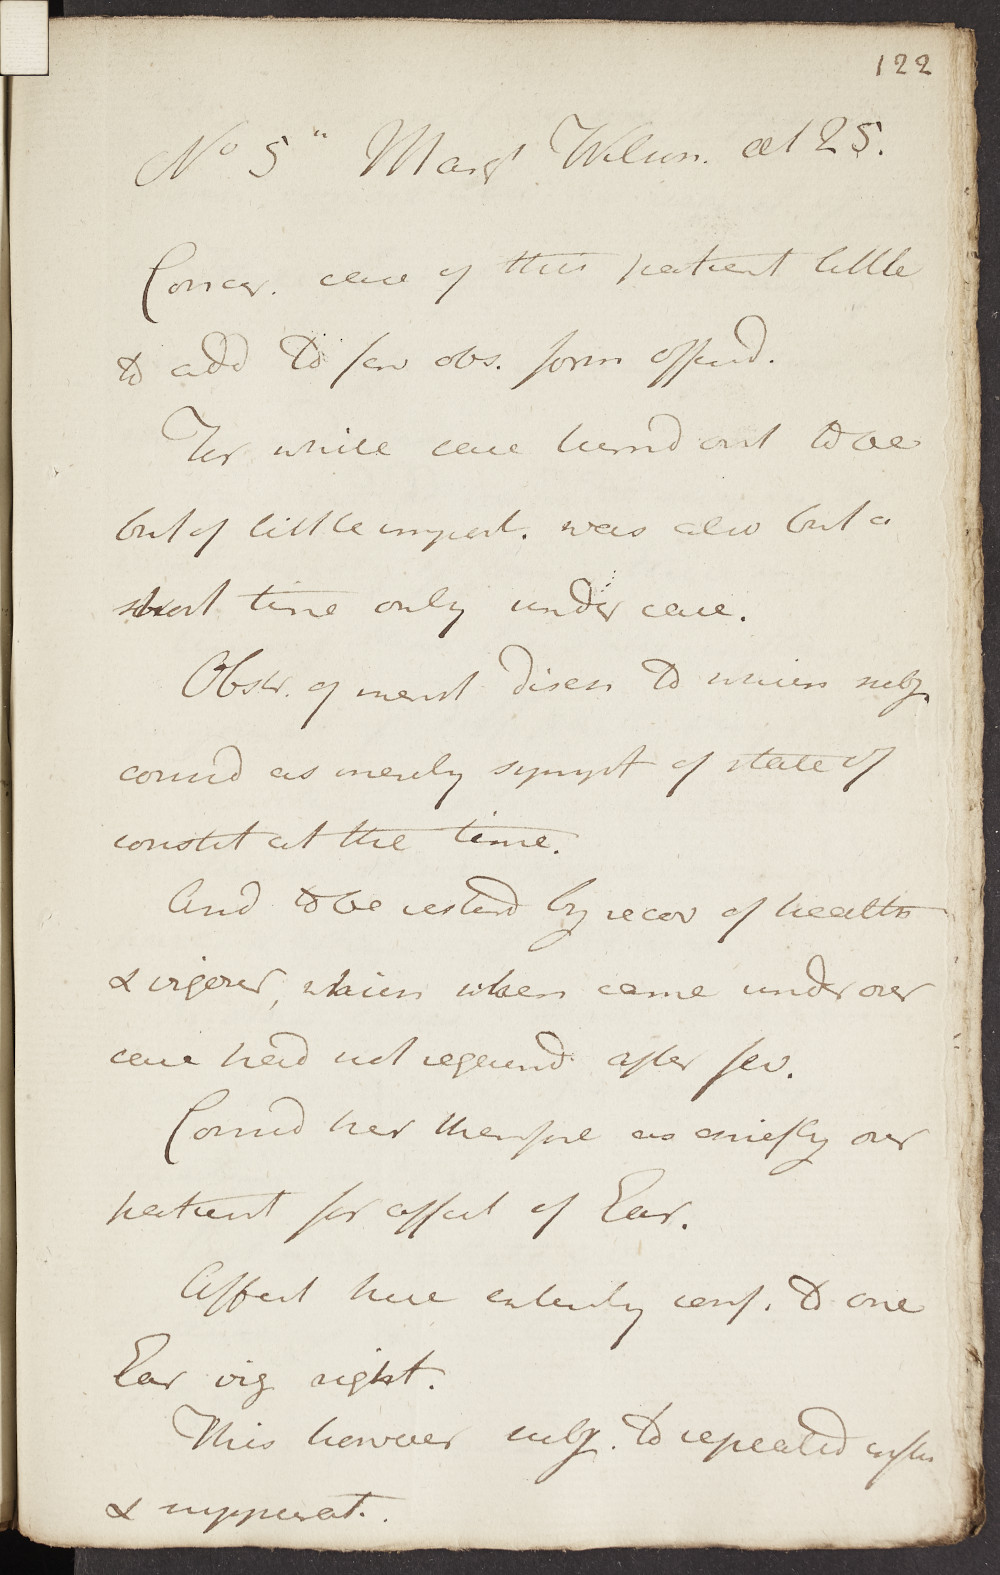 122
No 5" Margt Wilson. aet 25.
Concer. case of this patient little
to add to few obs. form offered.
For while case turnd out to be
but of little import. was also but a
short time only under care.
Obser. of menst diseas to which subj.
considd as merely sympt of state of
constit at the time.
And to be restord by recov of health
& vigour, which when came under our
care had not regaind after fev.
Considd her therefore as chiefly our
patient for affect of Ear.
Affect here entirely conf. to one
Ear viz right.
This however subj. to repeated inflam
& suppurat.